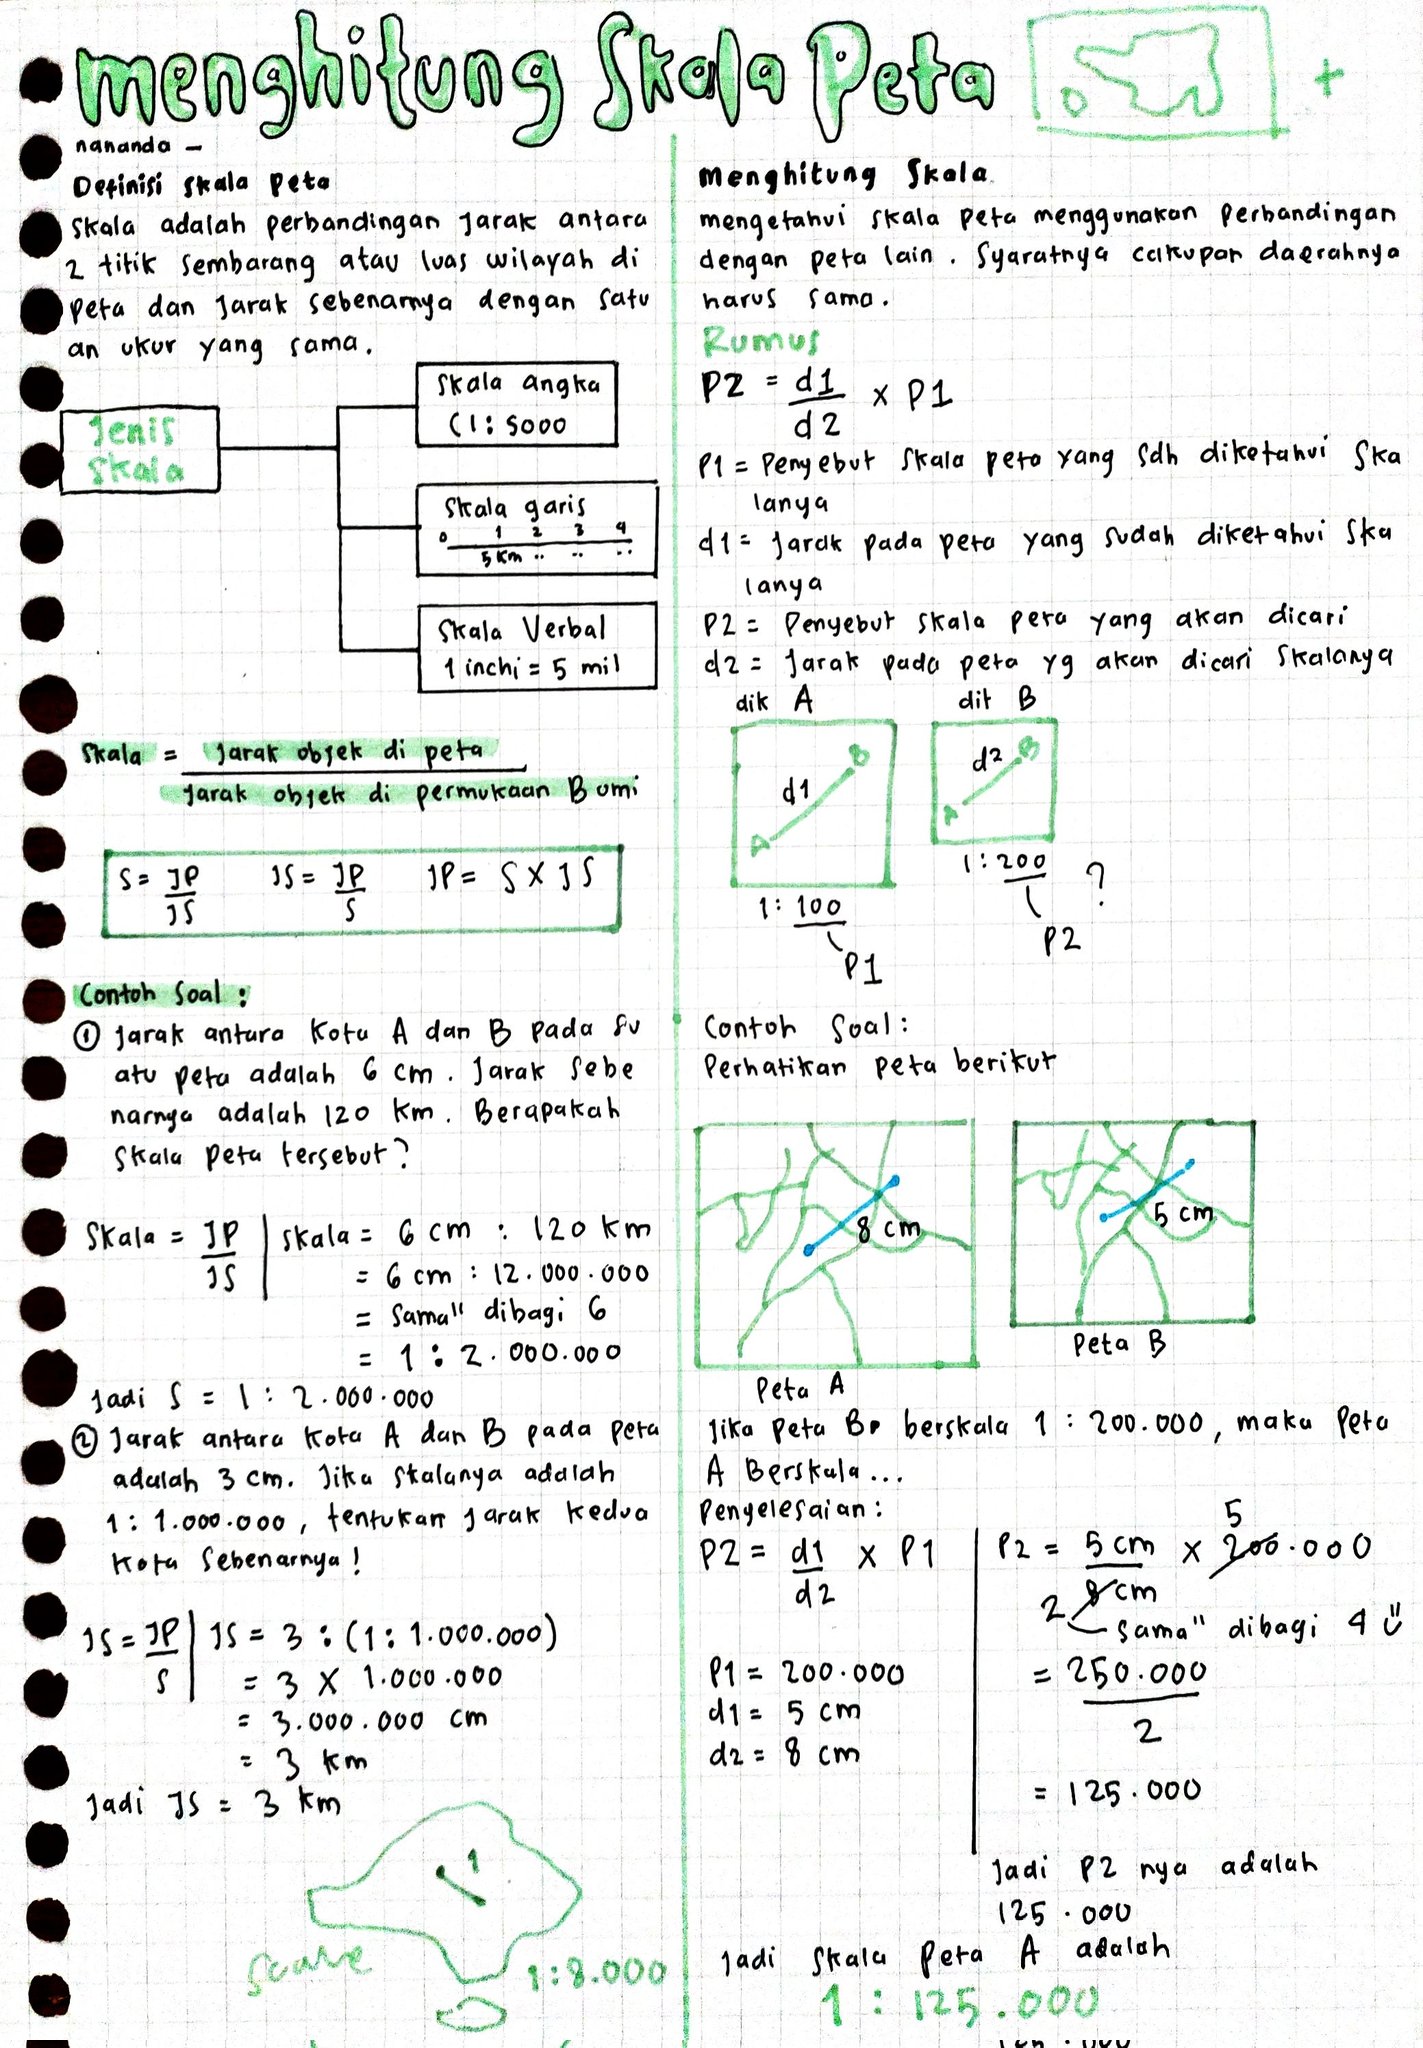 menghitung Skala Peta
nananda -
Definisi skala Peta
Skala adalah perbandingan Jarak antara
2 titik sembarang atau luas wilayah di
Peta dan Jarak sebenarnya dengan satu
an ukur yang sama.
Jenis
Skala
Skala angka
(1 : 5000
Skala garis
0 1 2 3 4
5 Km .. .. ..
Skala Verbal
1 inchi = 5 mil
Skala = Jarak objek di peta
Jarak objek di permukaan Bumi
S = JP JS = JP JP = S X JS
JS S
Contoh Soal :
① Jarak antara Kota A dan B pada su
atu peta adalah 6 cm. Jarak sebe
narnya adalah 120 Km. Berapakah
Skala Peta tersebut?
Skala = JP | Skala = 6 cm : 120 km
JS = 6 cm : 12.000.000
= Sama" dibagi 6
= 1 : 2.000.000
Jadi S = 1 : 2.000.000
② Jarak antara Kota A dan B pada peta
adalah 3 cm. Jika skalanya adalah
1 : 1.000.000, tentukan Jarak kedua
Kota Sebenarnya!
JS = JP | JS = 3 : (1 : 1.000.000)
S = 3 X 1.000.000
= 3.000.000 cm
= 3 km
Jadi JS = 3 km
1
1:8.000
menghitung Skala
mengetahui skala peta menggunakan perbandingan
dengan peta lain. Syaratnya cakupan daerahnya
harus sama.
Rumus
P2 = d1 x P1
d2
P1 = Penyebut Skala peta yang sdh diketahui Ska
lanya
d1 = Jarak pada peta yang sudah diketahui Ska
lanya
P2 = Penyebut skala peta yang akan dicari
d2 = Jarak pada peta yg akan dicari Skalanya
dik A dit B
A d1 B
A d2 B
1 : 100
P1
1 : 200 ?
P2
Contoh Soal :
Perhatikan peta berikut
8 cm
5 cm
Peta A
Peta B
Jika peta B berskala 1 : 200.000, maka Peta
A Berskala...
Penyelesaian :
P2 = d1 x P1
d2
P1 = 200.000
d1 = 5 cm
d2 = 8 cm
5
P2 = 5 cm x 200.000
2 8 cm
Sama" dibagi 4
= 250.000
2
= 125.000
Jadi P2 nya adalah
125.000
Jadi Skala Peta A adalah
1 : 125.000